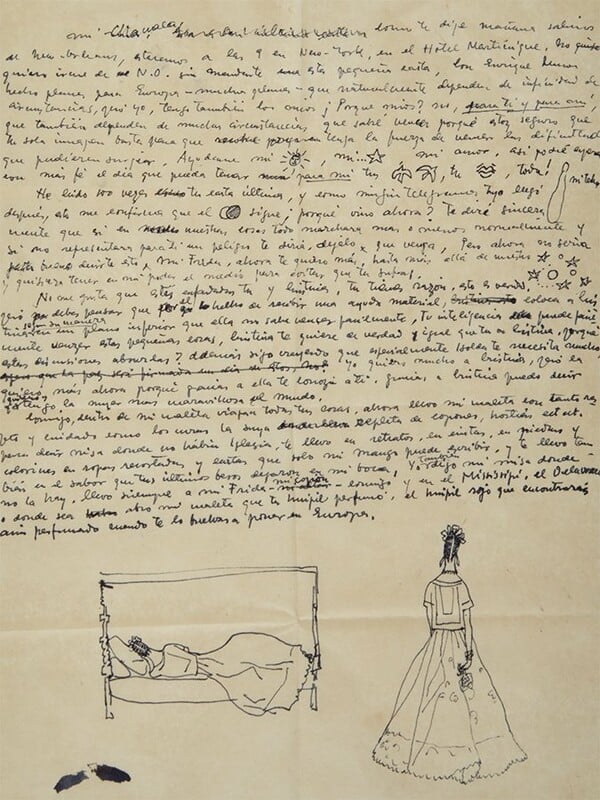 mi Chiquita como te dije mañana salimos
de New-Orleans, estaremos a las 9 en New-York, en el Hotel Martinique. No quise
quiero irme de N.O. sin mandarte esta pequeña carta, Con Enrique hemos
hecho planes para Europa - muchos planes - que naturalmente dependen de infinidad de
circunstancias, que yo, tengo también los míos ¿Porque míos? no, para ti y para mi,
que también dependen de muchas circunstancias, que sabré vencer porqué estoy seguro que
tu sola imagen basta para que tenga la fuerza de vencer las dificultades
que pudieran surgir. Ayudame mi mi... mi amor, así podré esperar
con más fé el día que pueda tener para mi tus tu toda!
He leido 100 veces tu carta última, y como ningún telegrama tuyo llegó
después, esto me confirma que el sigue; porqué vino ahora? Te diré sincera
mente que si en nuestras cosas todo marchara mas o menos normalmente y
si no representara para ti un peligro te diría, dejalo, que venga, Pero ahora no sería
decirte esto, mi Frida, ahora te quiero más, hasta más allá de
y quisiera tener en mi poder el medio para evitar que tu sufras,
No me gusta que estés enfadada tu y Cristina, tu tienes razón, esto es verdad,
pero no debes pensar que por el hecho de recibir una ayuda material, coloca a
en un plano inferior que ella no sabe vencer Tu inteligencia puede fácil
mente vencer estas pequeñas cosas, Cristina te quiere de verdad y igual que tu a Cristina, porqué
estas discusiones absurdas? Además sigo creyendo que especialmente Isolda te necesita mucho
Yo quiero mucho a Cristina, pero la
quiero más ahora porqué gracias a ella te conocí a ti. Gracias a Cristina puedo decir
tengo la mujer más maravillosa del mundo.
Conmigo, dentro de mi maleta viajan todas tus cosas, ahora llevo mi maleta con tanto res
peto y cuidado como los curas la suya repleta de copones, hostias
para decir misa donde no habia Iglesia, te llevo en retratos, en cintas, en piedras y
colorines en sopes recortadas y cartas que solo mi mango puede escribir, y te llevo tam
bién en el sabor que tus últimos besos dejaron en mi boca, Yo también digo mi misa donde
no la hay, llevo siempre a mi Frida mi conmigo y en el Mississipi, el Delaware
o donde sea abro mi maleta que tu Huipil perfumó, el Huipil rojo que encontrarás
aún perfumado cuando te lo vuelvas a poner en Europa.